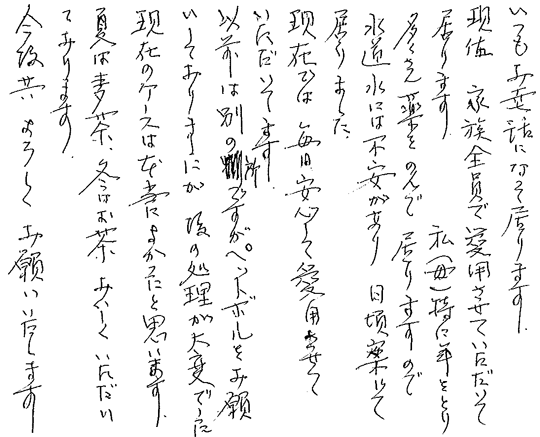 いつもお世話になって居ります。
現在 家族全員で愛用させていただいて
居ります。 私(母)特に年をとり
多くさん薬をのんで 居りますので
水道水には不安があり 日頃案じて
居りました。
現在では 毎日安心して愛用させて
いただいてます。
以前は別の所ですが、ペットボトルをお願
いしてありましたが 後の処理が大変でした
現在のケースは本当によかったと思います。
夏は麦茶、冬はお茶 おいしくいただい
ております。
今後共 よろしく お願いいたします